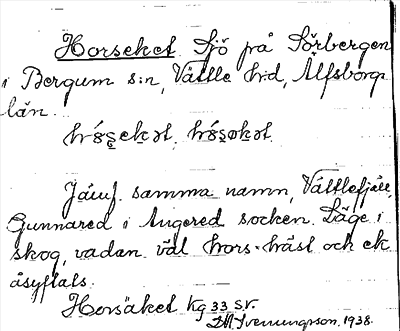 Horseket Sjö på Sörbergen
i Bergum s:n, Vättle h:d, Älfsborgs
län.
Jämf. samma namn, Vättlefjäll,
Gunnared i Angered socken. Läge i
skog, vadan väl hors-häst och ek
åsyftats.
Horsäket Kg 33 SV.
1938.